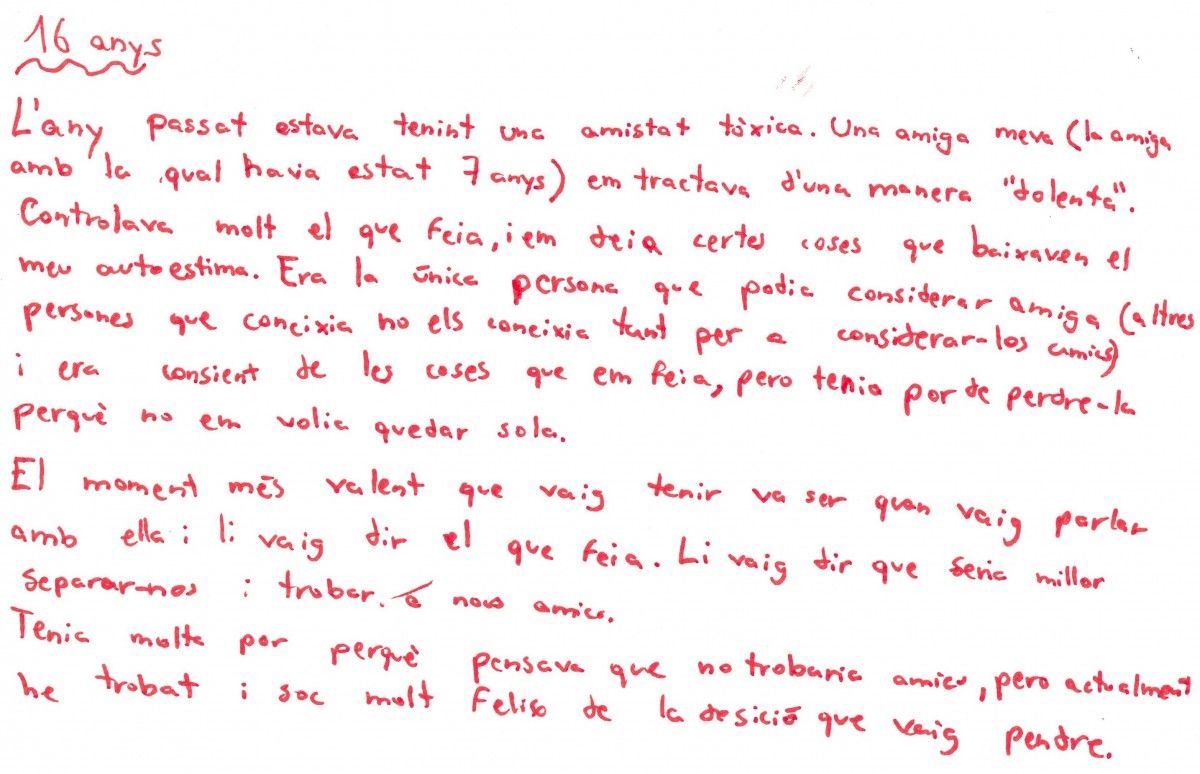 16 anys
L'any passat estava tenint una amistat tòxica. Una amiga meva (la amiga
amb la qual havia estat 7 anys) em tractava d'una manera "dolenta".
Controlava molt el que feia, i em deia certes coses que baixaven el
meu autoestima. Era la única persona que podia considerar amiga (altres
persones que coneixia no els coneixia tant per a considerar-los amics)
i era consient de les coses que em feia, pero tenia por de perdre-la
perquè no em volia quedar sola.
El moment més valent que vaig tenir va ser quan vaig parlar
amb ella i li vaig dir el que feia. Li vaig dir que seria millor
separar-nos i trobar. a nous amics.
Tenia molta por perquè pensava que no trobaria amics, pero actualment
he trobat i soc molt felisa de la desició que vaig pendre.